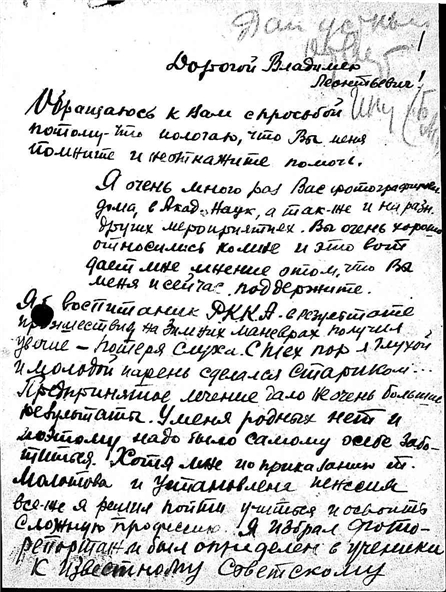 Дай
ответ
1
Дорогой Владимир
Леонтьевич!
Обращаюсь к Вам с просьбой
потому-что полагаю, что Вы меня
помните и не откажите помочь.
Я очень много раз Вас фотографировал
дома, в Акад. Наук, а так-же и на разн.
других мероприятиях. Вы очень хорошо
относились ко мне и это вот
дает мне мнение о том, что Вы
меня и сейчас поддержите.
Я воспитаник РККА. в результате
происшествия на Зимних маневрах получил
увечие – потеря слуха. С тех пор я глухой
и молодой парень сделался стариком...
Предпринятое лечение дало не очень большие
результаты. У меня родных нет и
поэтому надо было самому о себе забо-
титься. Хотя мне по приказанию т.
Молотова и установлена пенсия
все-же я решил пойти учиться и освоить
сложную профессию. Я избрал Фото-
репортаж и был определен в ученики
к известному советскому